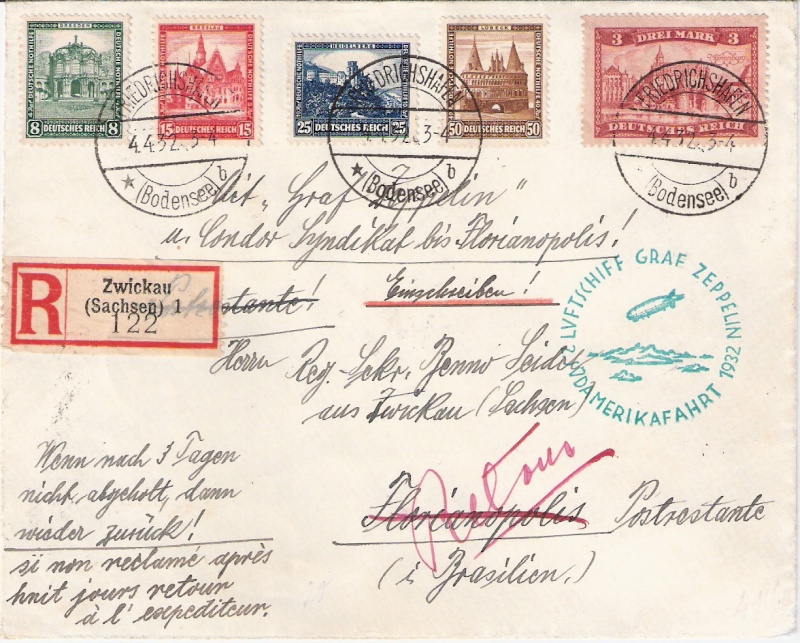 DRESDEN
DEUTSCHE NOTHILFE
8 DEUTSCHES REICH 8
BRESLAU
DEUTSCHE NOTHILFE
15 DEUTSCHES REICH 15
HEIDELBERG
DEUTSCHE NOTHILFE
25 DEUTSCHES REICH 25
LÜBECK
DEUTSCHE NOTHILFE
50 DEUTSCHES REICH 50
3 DREI MARK 3
DEUTSCHES REICH
FRIEDRICHSHAFEN
4.4.32.3-4
(Bodensee) b
FRIEDRICHSHAFEN
4.4.32.3-4
(Bodensee) b
FRIEDRICHSHAFEN
4.4.32.3-4
(Bodensee) b
Mit "Graf Zeppelin"
u. Condor Syndikat bis Florianopolis!
Einschreiben!
R
Zwickau
(Sachsen) 1
122
Postrestante!
LUFTSCHIFF GRAF ZEPPELIN
2. SÜDAMERIKAFAHRT 1932
Herrn Reg. Sekr. Benno Seidel
aus Zwickau (Sachsen)
Retour
Florianopolis Postrestante
(i Brasilien.)
Wenn nach 3 Tagen
nicht abgeholt, dann
wieder zurück!
si non reclamé après
huit jours retour
à l'expediteur.